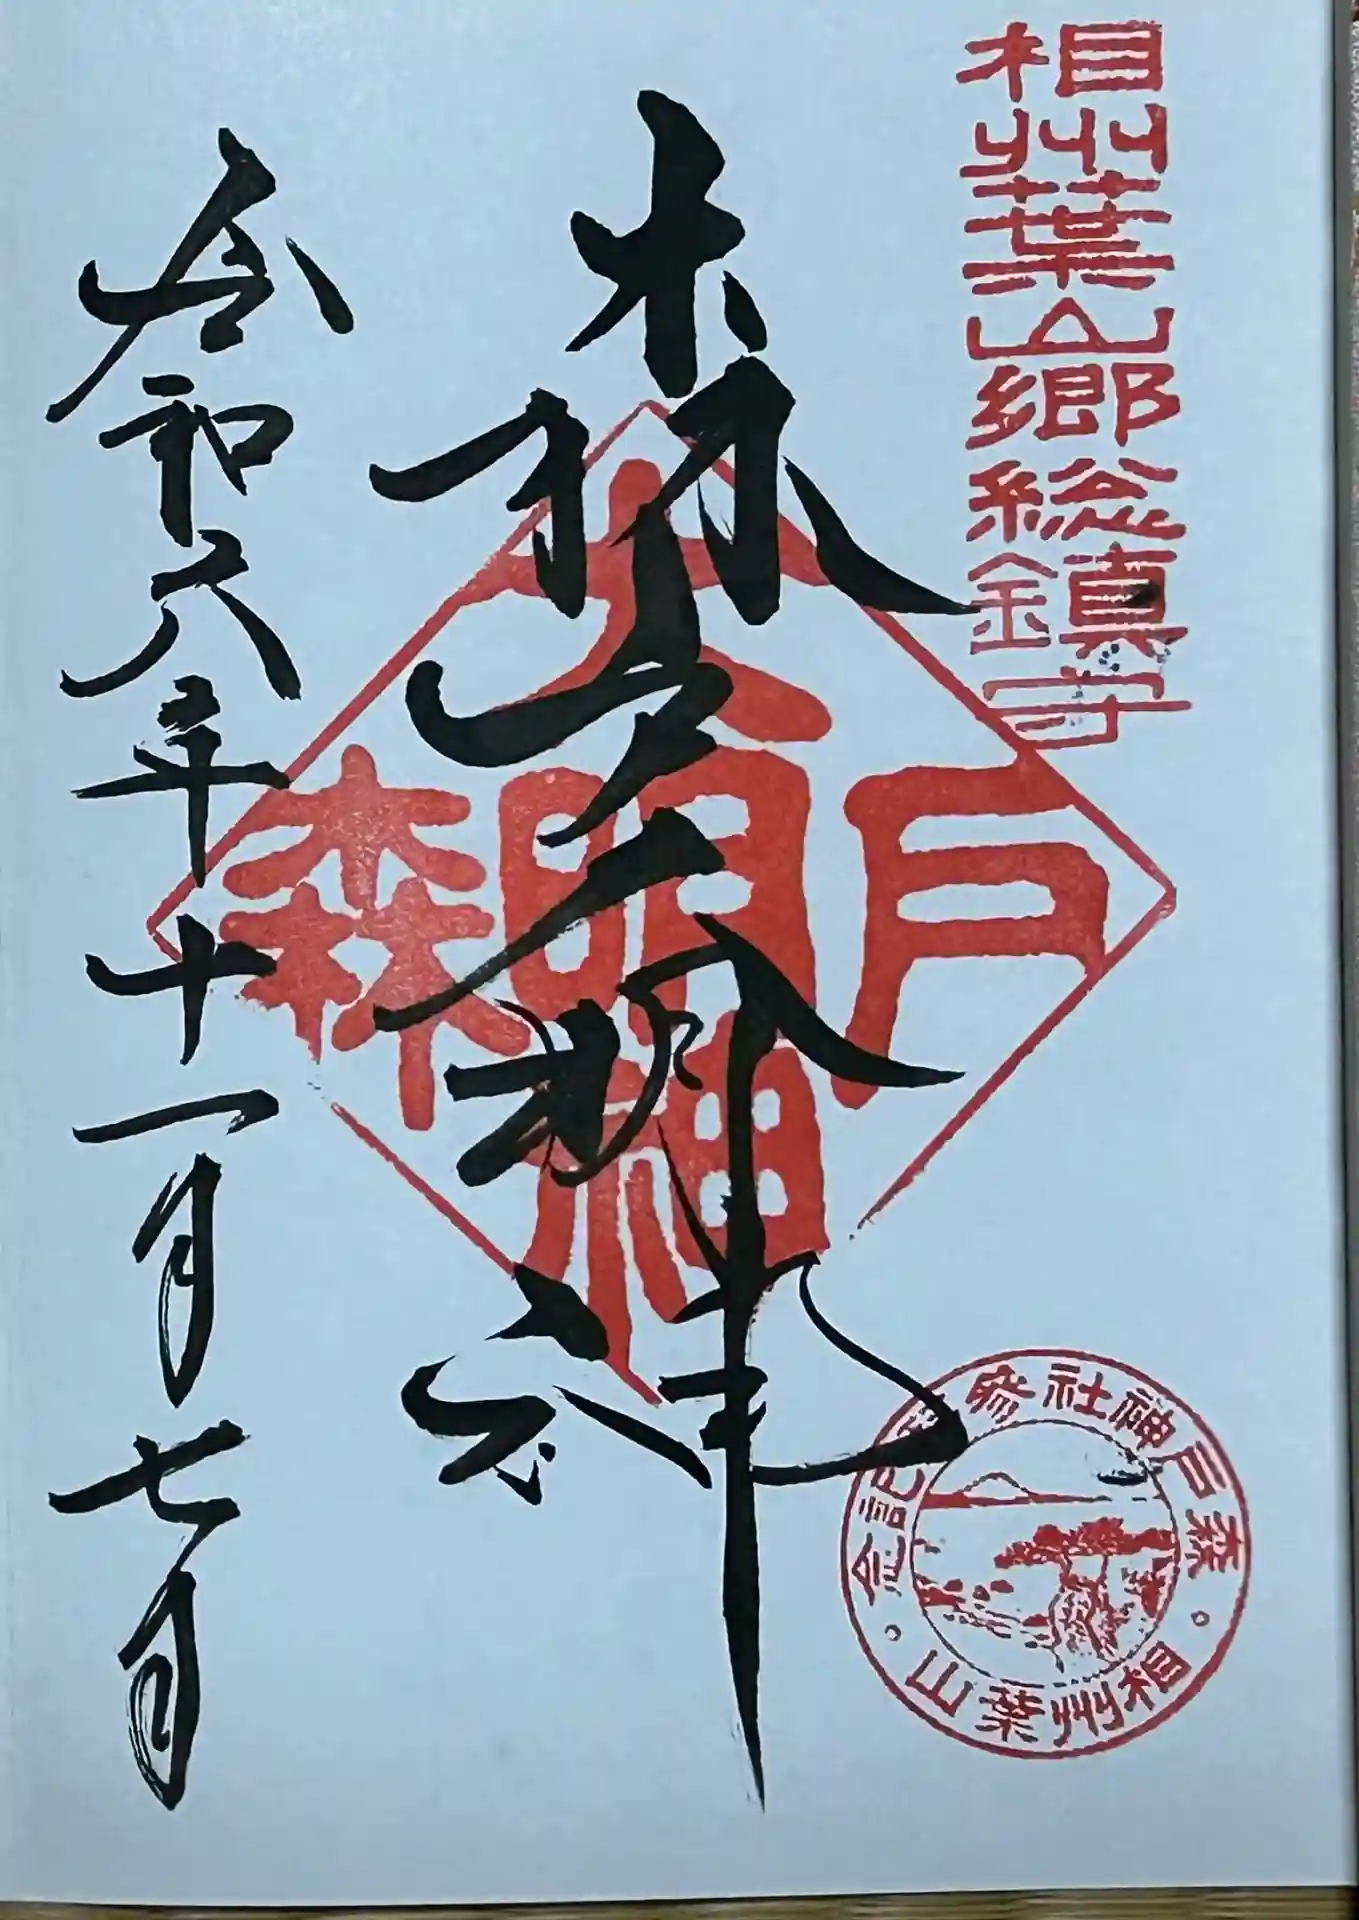 相州葉山郷総鎮守
森戸大明神
森戸大明神
令和六年十一月七日
森戸神社参拝記念
相州葉山